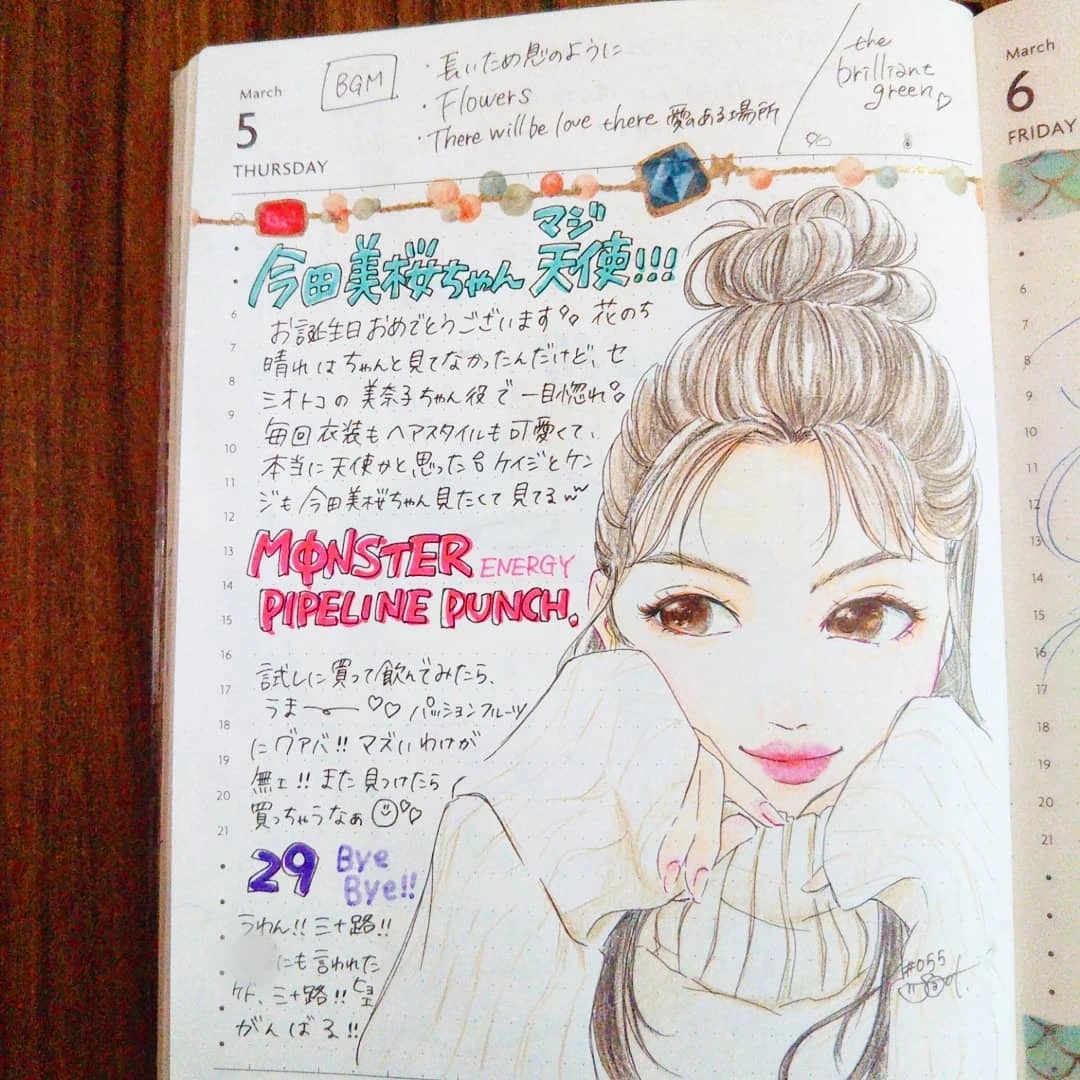 March
5
THURSDAY
BGM
・長いため息のように
・Flowers
・There will be love there 愛のある場所
the
brilliant
green♡
マジ
今田美桜ちゃん 天使!!!
お誕生日おめでとうございます 花のち
晴れはちゃんと見てなかったんだけど、セ
ミオトコの美奈子ちゃん役で一目惚れ
毎回衣装もヘアスタイルも可愛くて、
本当に天使かと思った ケイジとケン
ジも今田美桜ちゃん見たくて見てるww
MONSTER ENERGY
PIPELINE PUNCH.
試しに買って飲んでみたら、
うまー ♡♡ パッションフルーツ
にグァバ!! マズいわけが
無ェ!! また見つけたら
買っちゃうなぁ
29 Bye
Bye!!
うわん!! 三十路!!
にも言われた
ケド、三十路!! ヒョエ
がんばる!!
#055
6
7
8
9
10
11
12
13
14
15
16
17
18
19
20
21
March
6
FRIDAY
13
14
15
16
17
18
19
20
21